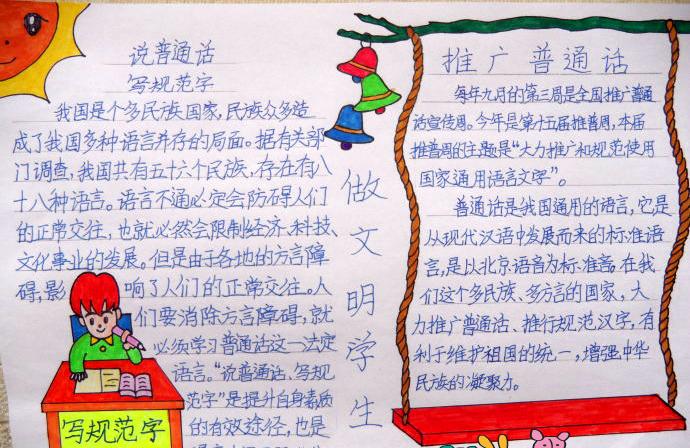 说普通话
写规范字
我国是个多民族国家，民族众多造
成了我国多种语言并存的局面。据有关部
门调查，我国共有五十六个民族，存在有八
十八种语言。语言不通必定会防碍人们
的正常交往，也就必然会限制经济、科技、
文化事业的发展。但是由于各地的方言障
碍，影响了人们的正常交往。人
们要消除方言障碍，就
必须学习普通话这一法定
语言。“说普通话、写规
范字”是提升自身素质
的有效途径，也是
写规范字
做文明学生
推广普通话
每年九月的第三周是全国推广普通
话宣传周。今年是第十五届推普周，本届
推普周的主题是“大力推广和规范使用
国家通用语言文字”。
普通话是我国通用的语言，它是
从现代汉语中发展而来的标准语
言，是以北京语音为标准音。在我
们这个多民族、多方言的国家，大
力推广普通话、推行规范汉字，有
利于维护祖国的统一，增强中华
民族的凝聚力。